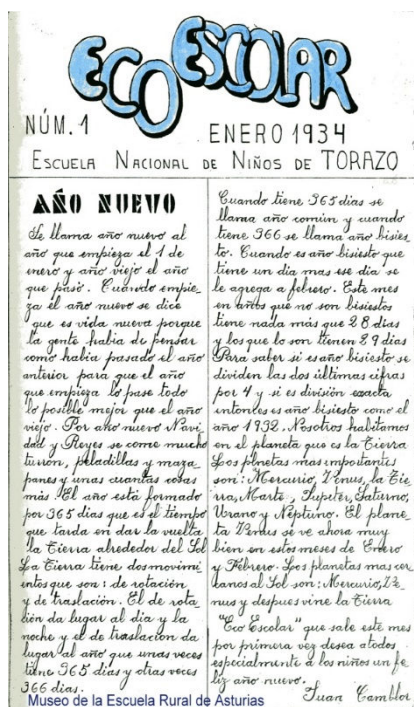 ECO ESCOLAR
NÚM. 1
ENERO 1934
ESCUELA NACIONAL DE NIÑOS DE TORAZO
AÑO NUEVO
Se llama año nuevo al
año que empieza el 1 de
enero y año viejo el año
que pasó. Cuando empie-
za el año nuevo se dice
que es vida nueva porque
la gente habia de pensar
como habia pasado el año
anterior para que el año
que empieza lo pase todo
lo posible mejor que el año
viejo. Por año nuevo Navi
dad y Reyes se come mucho
turron, peladillas y maza
panes y unas cuantas cosas
más. El año está formado
por 365 dias que es el tiempo
que tarda en dar la vuelta
la Tierra alrededor del Sol
La Tierra tiene dos movimi
entos que son: de rotación
y de traslación. El de rota_
ción da lugar al dia y la
noche y el de traslacion da
lugar al año que unas veces
tiene 365 dias y otras veces
366 dias.
Cuando tiene 365 dias se
llama año común y cuando
tiene 366 se llama año bisies
to. Cuando es año bisiesto que
tiene un dia mas ese dia se
le agrega a febrero. Este mes
en años que no son bisiestos
tiene nada más que 28 dias
y los que lo son tienen 29 dias
Para saber si es año bisiesto se
dividen las dos últimas cifras
por 4 y si es división exacta
entonces es año bisiesto como el
año 1932. Nosotros habitamos
en el planeta que es la Tierra
Los plnetas mas importantes
son: Mercurio, Venus, la Tie_
rra, Marte, Jupiter, Saturno,
Urano y Neptuno. El plane_
ta Venus se ve ahora muy
bien en estos meses de Enero
y Febrero. Los planetas mas cer
canos al Sol son: Mercurio, Ve_
nus y despues vine la Tierra
"Eco Escolar" que sale este mes
por primera vez desea atodos
especialmente a los niños un fe
liz año nuevo.
Juan Camblor
Museo de la Escuela Rural de Asturias